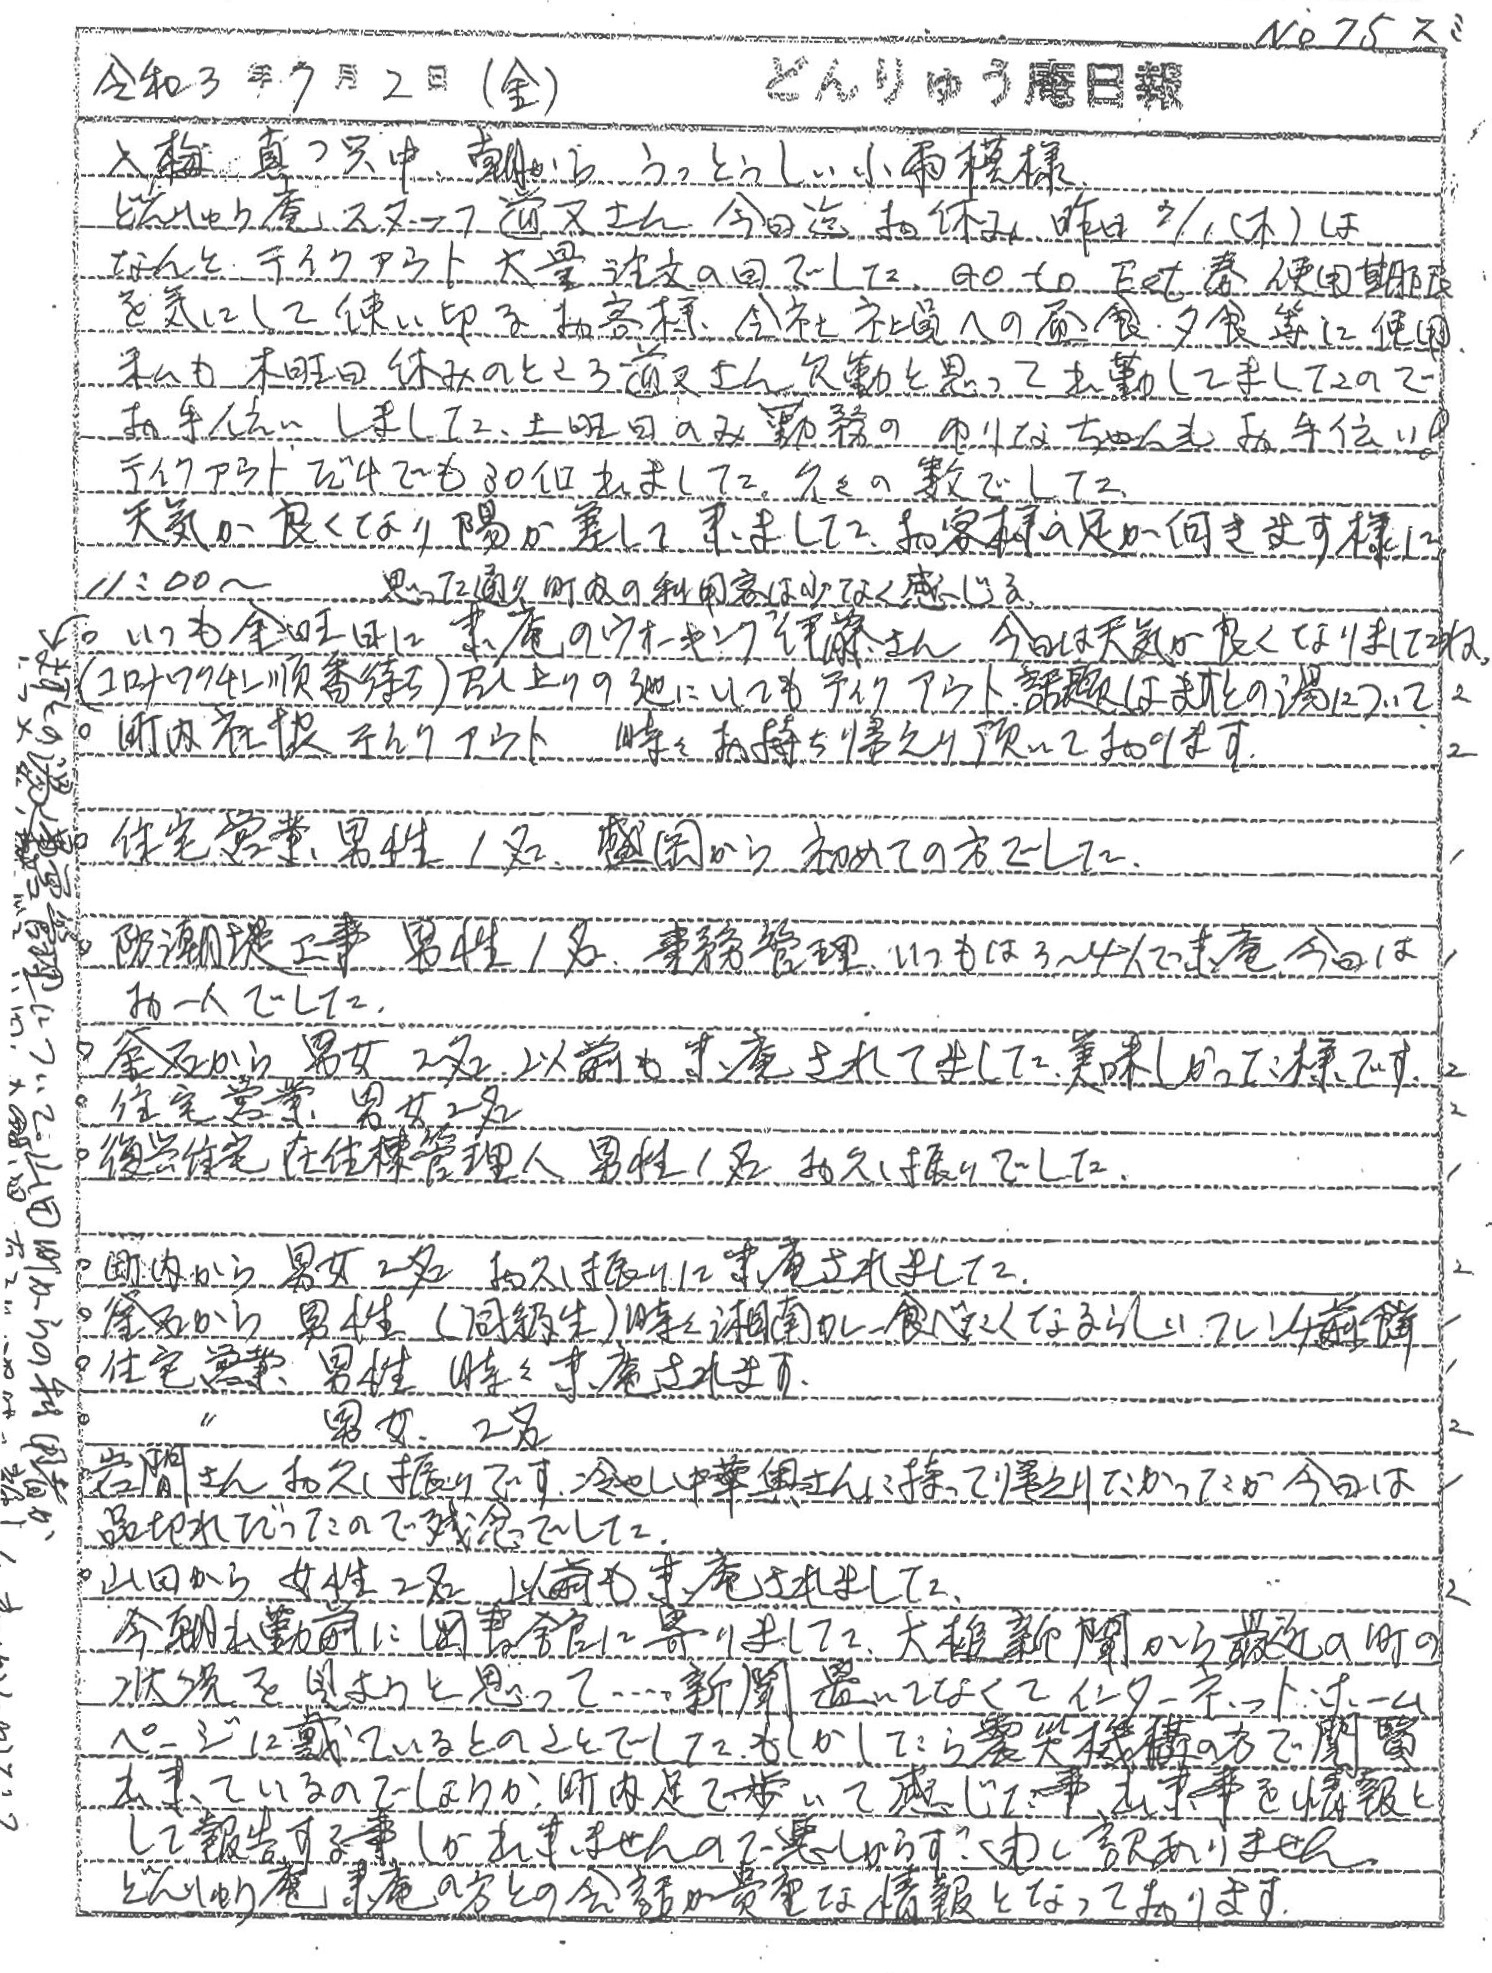 No 75 スミ
令和3年7月2日(金) どんりゅう庵日報
入梅 真っ只中、朝から うっとうしい小雨模様、
どんりゅう庵、スタッフ さん 今日迄 お休み、昨日 7/1(木)は
なんと テイクアウト 大量注文の日でした、Go to Eat 券 使用期限
を気にして 使い切る お客様、会社 社員への昼食・夕食 等に使用、
私も 木曜日 休みのところ さん 欠勤と思って出勤してましたので
お手伝い しました、土曜日のみ 勤務の ゆりなちゃんも お手伝い、
テイクアウト だけでも 30個 出ました、久々の 数でした、
天気が良くなり 陽が差して来ました、お客様の足が向きます様に
11:00〜 思った通り 町内の利用客は少なく感じる、
○ いつも金曜日に 来庵のウォーキング伊藤さん 今日は天気が良くなりましたね、
(コロナワクチン順番待ち) 召し上りの 他にいつも テイクアウト 話題はますとの湯について 2
○ 町内社協 テイクアウト 時々お持ち帰えり頂いております。 2
○ 住宅営業、男性 1名、盛岡から 初めての方でした、 1
○ 防潮堤工事 男性 1名、事務管理、いつもは3〜4人で来庵、今日は 1
お一人でした、
○ 釜石から 男女 2名、以前も 来庵されてました、美味しかった様です、 2
○ 住宅営業、男女2名 2
○ 復興住宅 在住棟管理人 男性 1名 お久し振りでした、 1
○ 町内から 男女 2名 お久し振りに 来庵されました、 2
○ 釜石から 男性 (同級生) 時々湘南カレー食べたくなるらしい、フレンチ煎餅 1
○ 住宅営業 男性 時々来庵されます、 1
○ 〃 男女、2名 2
○ 岩間さん お久し振りです、冷やし中華奥さんに持って帰えりたかったが 今日は 1
品切れだったので残念でした、
○ 山田から 女性 2名 以前も来庵されました、 2
今朝出勤前に図書館に寄りました、大槌新聞から最近の町の
状況を見ようと思って……新聞 置いてなくて インターネット・ホーム
ページに載ているとのことでした、もしかしたら震災機構の方で閲覧
出来ているのでしょうか、町内足で歩いて感じた事、出来事を情報と
して報告する事しか出来ませんので悪しからず、申し訳ありません、
どんりゅう庵」来庵の方との会話が貴重な情報となっております、
ますとの湯、運営管理について、山田町からの利用者が